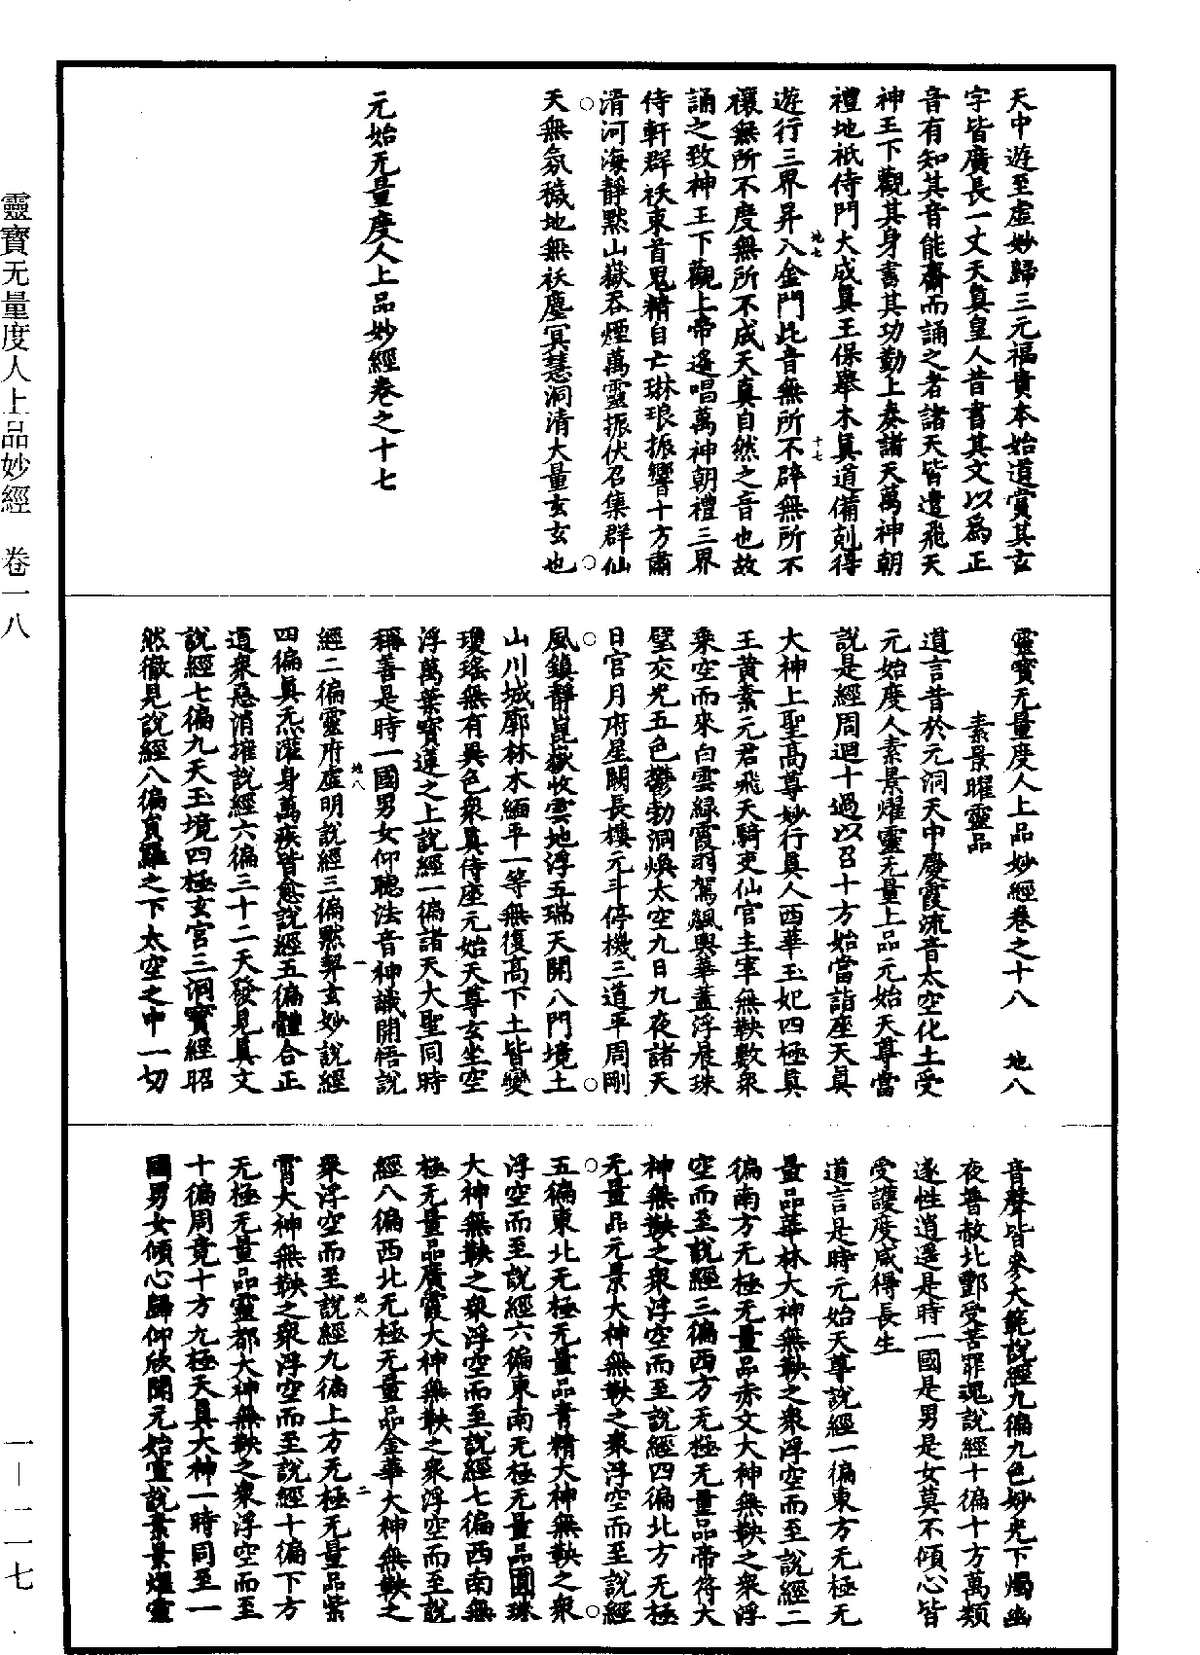 天中遊至虛妙歸三元福貴本始道賞其玄
字皆廣長一丈天真皇人昔書其文以為正
音有知其音能齋而誦之者諸天皆遣飛天
神王下觀其身書其功勤上奏諸天萬神朝
禮地祇侍門大成真王保舉木真道備剋得
遊行三界昇入金門此音無所不辟無所不
禳無所不度無所不成天真自然之音也故
誦之致神王下觀上帝遙唱萬神朝禮三界
侍軒群祅束首鬼精自亡琳琅振響十方肅
清河海靜默山嶽吞煙萬靈振伏召集群仙
天無氛穢地無祅塵冥慧洞清大量玄玄也
元始无量度人上品妙經卷之十七
地七
十七
靈寶无量度人上品妙經卷之十八 地八
素景曜靈品
道言昔於元洞天中慶霞流音太空化土受
元始度人素景燿靈无量上品元始天尊當
說是經周迴十過以召十方始當詣座天真
大神上聖高尊妙行真人西華玉妃四極真
王黄素元君飛天騎吏仙官主宰無鞅數衆
乘空而來白雲緑霞羽駕飆輿華蓋浮晨珠
璧交光五色鬱勃洞煥太空九日九夜諸天
日官月府星闕長樓元斗停機三道平周剛
風鎮靜崑嶽收雲地浮五瑞天開八門境土
山川城廓林木緬平一等無復高下土皆變
瓊瑶無有異色衆真侍座元始天尊玄坐空
浮萬葉寶蓮之上說經一徧諸天大聖同時
稱善是時一國男女仰聽法音神識開悟說
經二徧靈府虛明說經三徧黙契玄妙說經
四徧真炁灌身萬疾皆愈說經五徧體合正
道衆惡消摧說經六徧三十二天發見真文
說經七徧九天玉境四極玄宫三洞寶經昭
然徹見說經八徧負羅之下太空之中一切
地八
一
音聲皆參大範說經九徧九色妙光下燭幽
夜普赦北酆受苦罪魂說經十徧十方萬類
遂性逍遥是時一國是男是女莫不傾心皆
受護度咸得長生
道言是時元始天尊說經一徧東方无極无
量品華林大神無鞅之衆浮空而至說經二
徧南方无極无量品赤文大神無鞅之衆浮
空而至說經三徧西方无極无量品帝符大
神無鞅之衆浮空而至說經四徧北方无極
无量品元景大神無鞅之衆浮空而至說經
五徧東北无極无量品青精大神無鞅之衆
浮空而至說經六徧東南无極无量品圓珠
大神無鞅之衆浮空而至說經七徧西南無
極无量品廣霞大神無鞅之衆浮空而至說
經八徧西北无極无量品金華大神無鞅之
衆浮空而至說經九徧上方无極无量品紫
霄大神無鞅之衆浮空而至說經十徧下方
无極无量品靈都大神無鞅之衆浮空而至
十徧周竟十方九極天真大神一時同至一
國男女傾心歸仰欣聞元始宣說素景燿靈
地八
二
靈寶无量度人上品妙經 卷一八
一—一一七